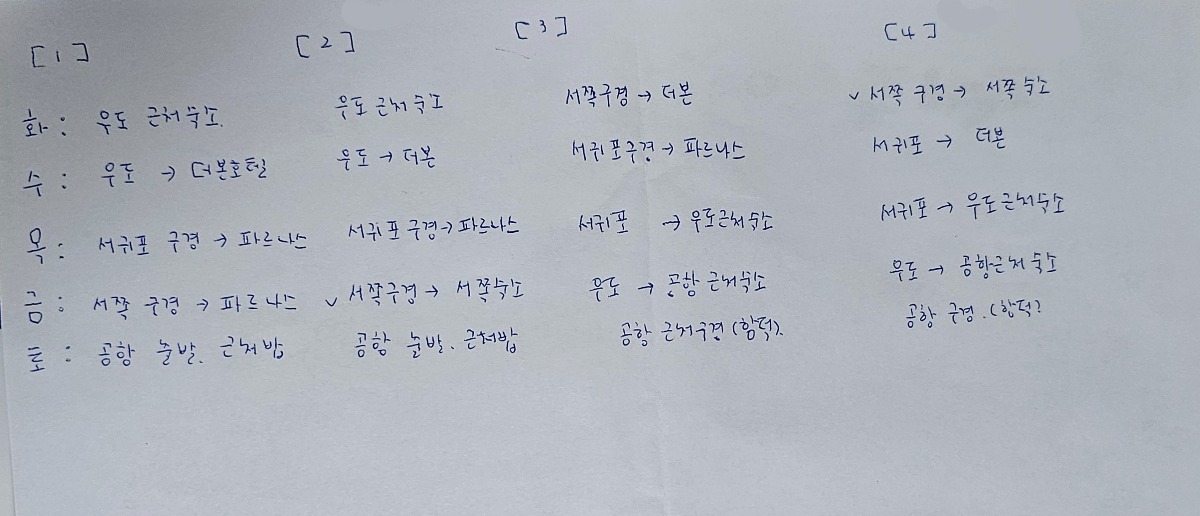 [1] [2] [3] [4]
화: 우도 근처숙소. 우도 근처숙소 서쪽구경 → 더본 ✓ 서쪽 구경 → 서쪽숙소
수: 우도 → 더본호텔 우도 → 더본 서귀포구경 → 파르나스 서귀포 → 더본
목: 서귀포 구경 → 파르나스 서귀포구경 → 파르나스 서귀포 → 우도근처숙소 서귀포 → 우도근처숙소
금: 서쪽 구경 → 파르나스 ✓ 서쪽구경 → 서쪽숙소 우도 → 공항 근처숙소 우도 → 공항근처 숙소
토: 공항 출발. 근처밥 공항 출발. 근처밥 공항 근처구경 (함덕). 공항 구경. (함덕?